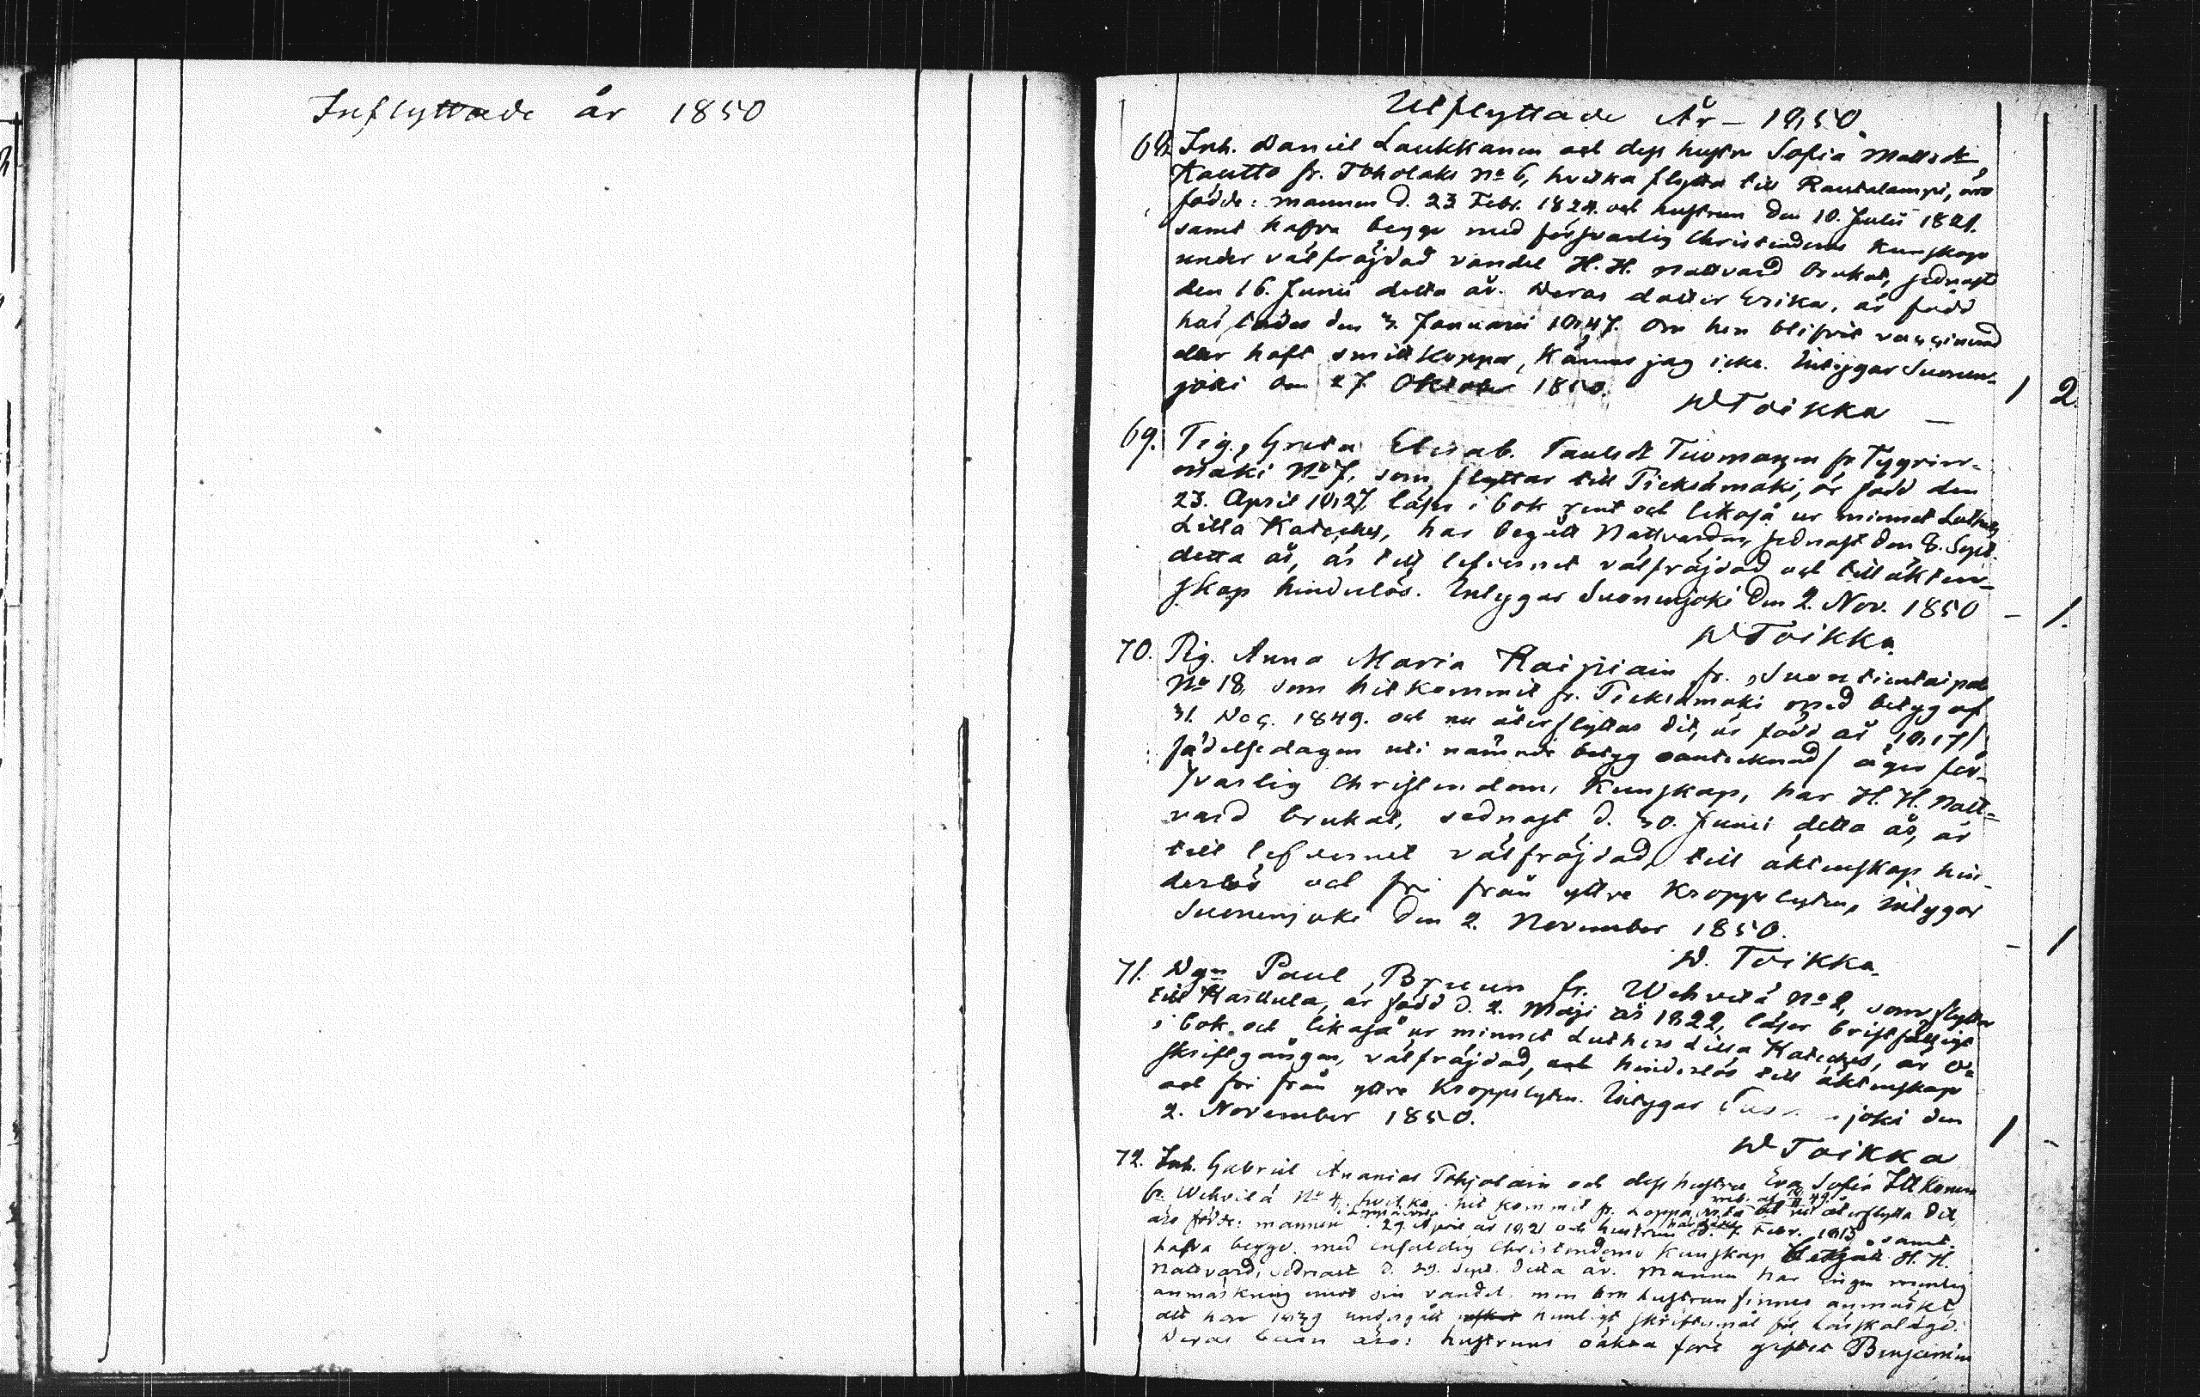 Inflyttade år 1850
Utflyttade År 1850
68. Inh. Daniel Laukkanen och dess hustru Sofia Mattsdr
Kautto fr. Toholaks No 6, hvilka flytta till Rautalampi, äro
födde: mannen d. 23 Febr. 1824 och hustrun den 10. Julii 1821.
samt hafva begge med försvarlig Christendoms kunskap
under välfräjdad vandel H. H. Nattvard brukat, sednast
den 16. Junii detta år. Deras dotter Erika, är född
härstädes den 3. Januarii 1847. Om hon blifvit vaccinerad
eller haft smittkoppor, känner jag icke. Intygar Suonen-
joki den 27. Oktober 1850.
W Toikka
1 2.
69. Pig. Greta Elisab. Paulsdr Tuomainen fr Tyyrin-
mäki No 7, som flyttar till Pieksämäki, är född den
23. April 1827, läser i bok rent och likaså ur minnet Luthers
Lilla Kateches, har begått Nattvarden sednast den 8. Sept.
detta år, är till lefvernet välfräjdad och till äkten-
skap hinderlös. Intygar Suonenjoki den 2. Nov. 1850
W Toikka
- 1.
70. Pig. Anna Maria Kaipiain fr. Suontientaipal
No 18, som hitkommit fr. Pieksämäki med betyg af
31. Dec. 1849. och nu återflyttar dit, är född år 1817/
födelsedagen uti nämnde betyg oantecknad/ äger för-
svarlig Christendoms kunskap, har H. H. Natt-
vard brukat, sednast d. 30. Junii detta år, är
till lefvernet välfräjdad, till äktenskap hin-
derlös och fri från yttre kroppslyten, intygar
Suonenjoki den 2. November 1850.
W. Toikka
- 1
71. Dgn Paul Bruun fr. Wehvilä No 2, som flyttar
till Karttula, är född d. 2. Maji år 1822, läser bristfälligt
i bok och likaså ur minnet Luthers Lilla Kateches, är
skriftgången, välfräjdad, och hinderlös till äktenskap
och fri från yttre kroppslyten. Intygar joki den
2. November 1850.
W Toikka
1 -
72. Inh. Gabriel Ananias Pohjolain och dess hustru Eva Sofia Itkonen
fr. Wehvilä No 4, hvilka hit kommit fr. och nu återflytta dit,
äro födde: mannen 29. April år 1821 och hustrun d. 7 Febr. 1813, samt
hafva begge med enfaldig Christendoms kunskap begått H. H.
Nattvard, sednast d. 29. Sept. detta år. Mannen har ingen menlig
anmärkning mot sin vandel, men om hustrun finnes anmärkt
att hon 1839 undergått hemligt skriftemål för löskaläge.
Deras barn äro: hustruns oäkta före giftet Benjamin